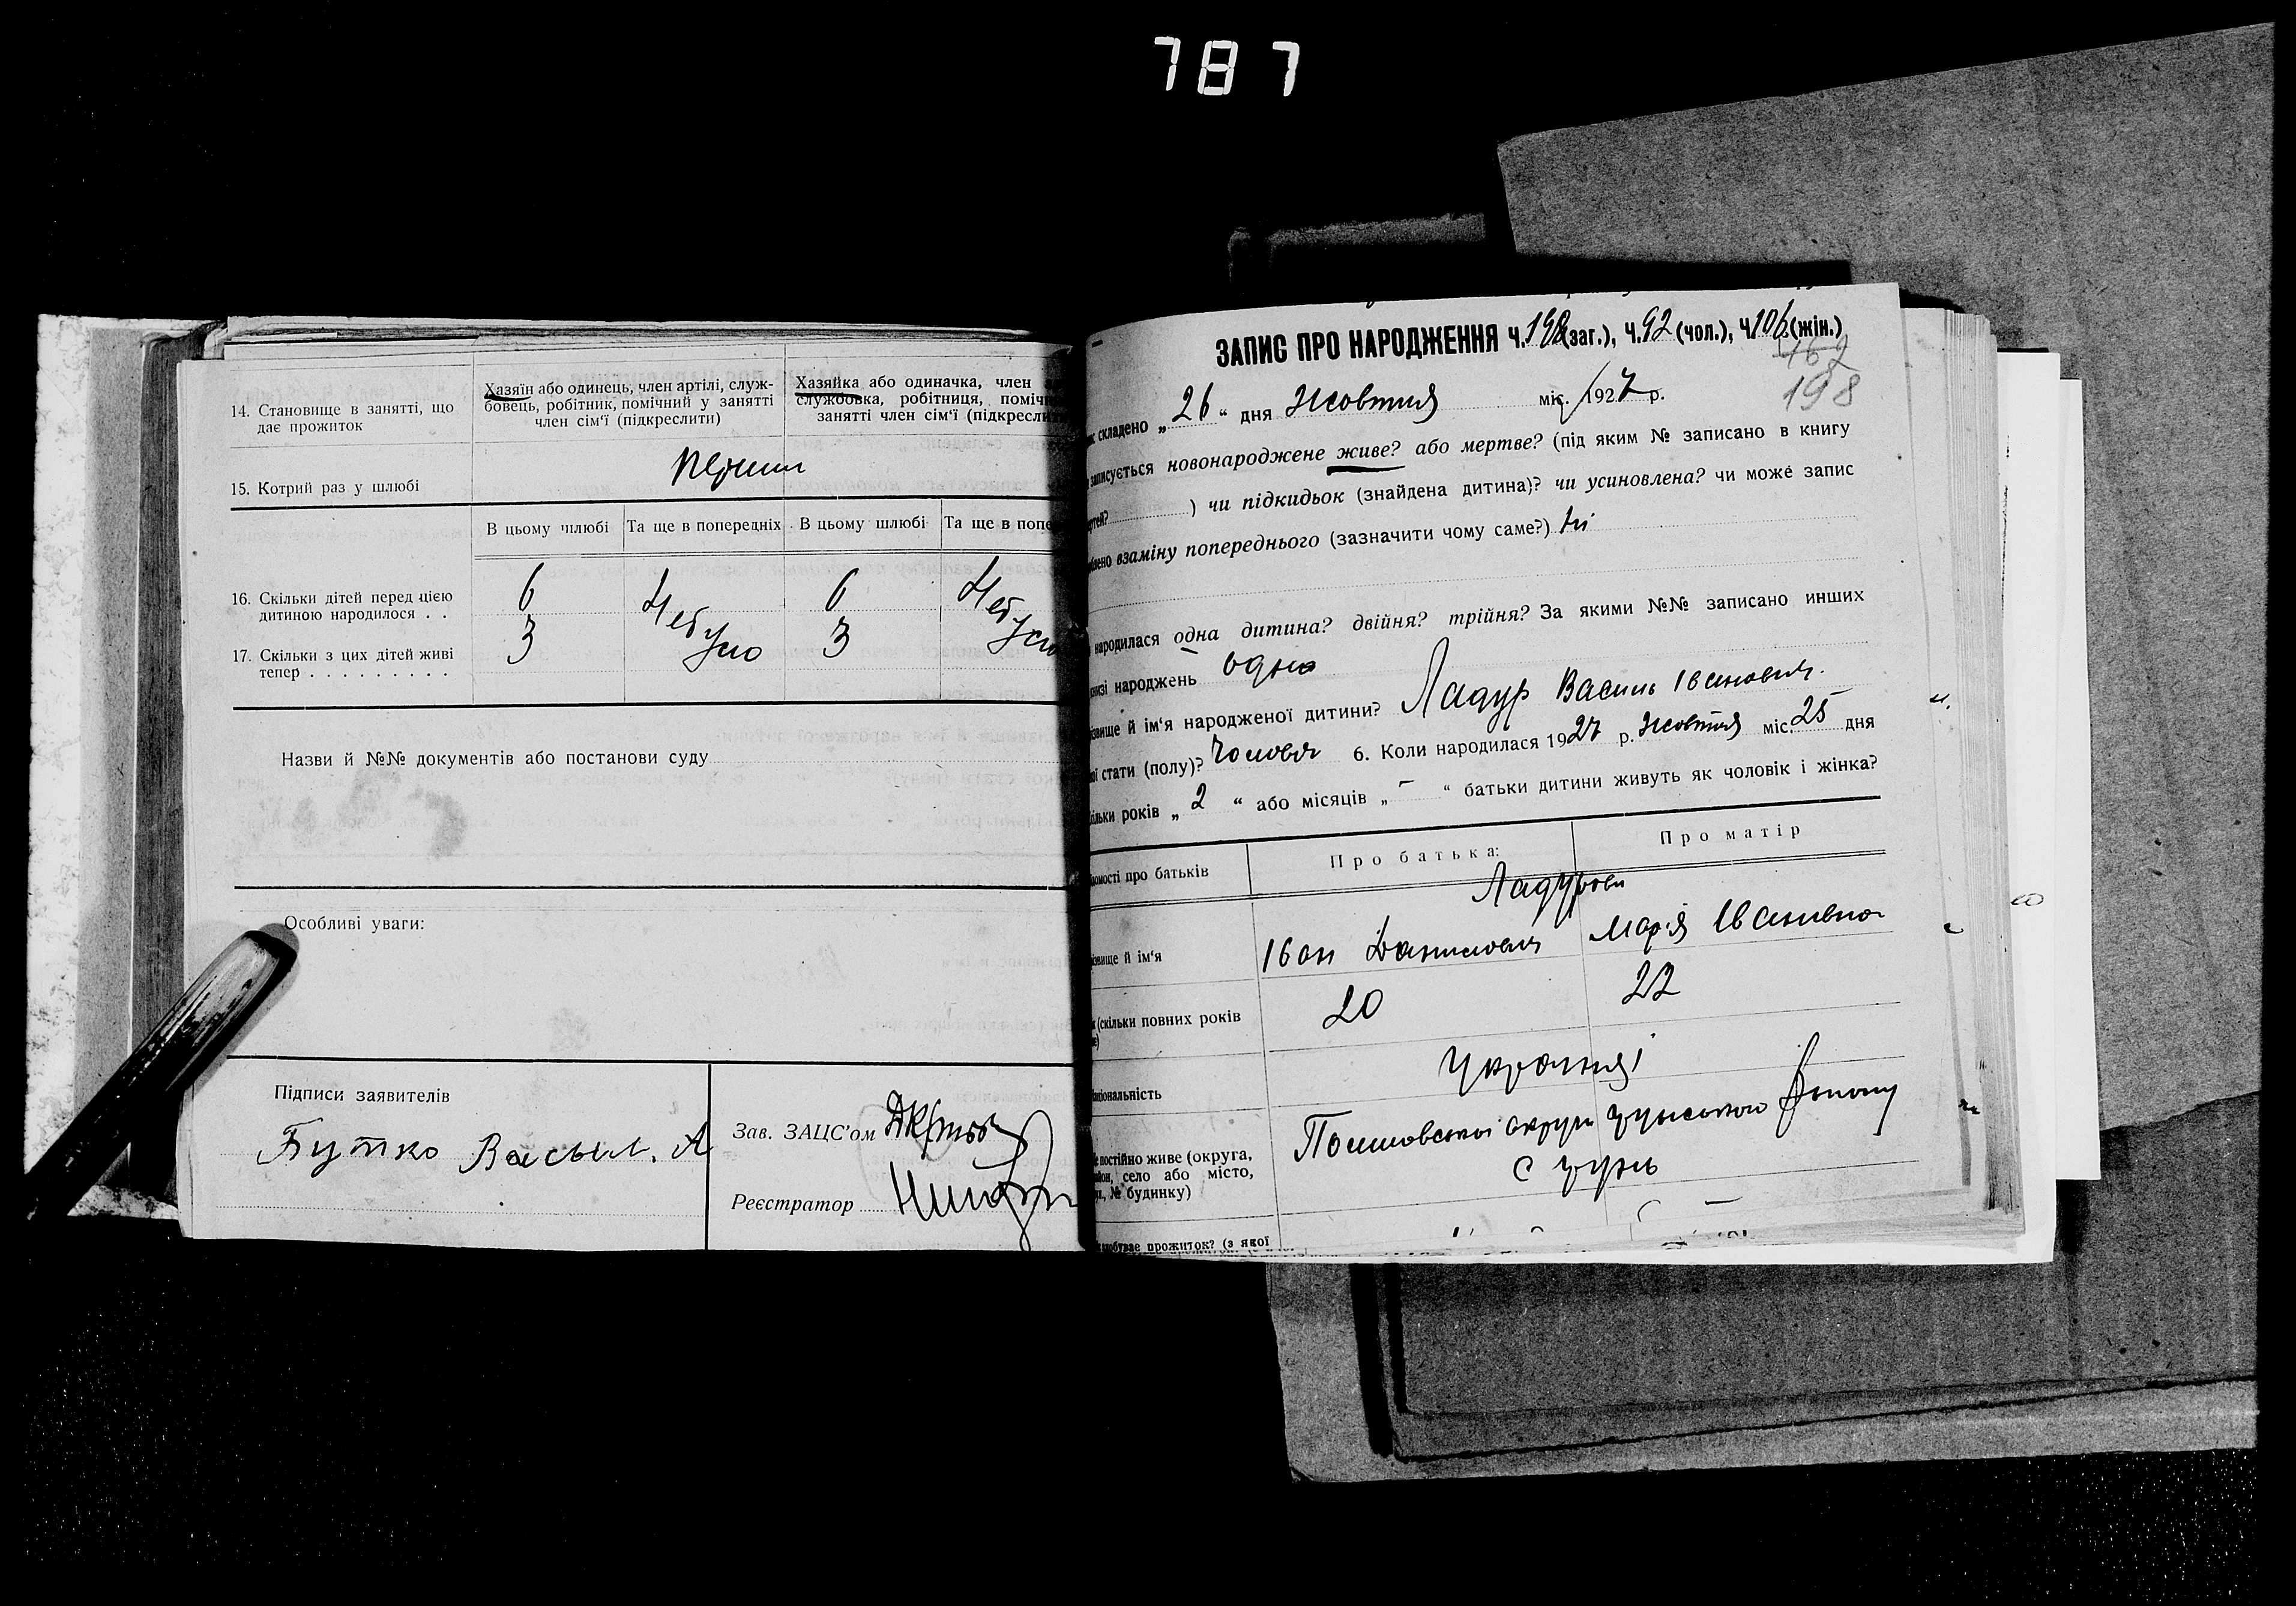 787
14. Становище в занятті, що
дає прожиток
Хазяїн або одинець, член артілі, служ-
бовець, робітник, помічний у занятті
член сім'ї (підкреслити)
Хазяйка або одиначка, член
службовка, робітниця, поміч
занятті член сім'ї (підкресли
15. Котрий раз у шлюбі
перший
В цьому шлюбі Та ще в попередніх В цьому шлюбі Та ще в попе
16. Скільки дітей перед цією
дитиною народилося . .
6 6
17. Скільки з цих дітей живі
тепер . . . . . . . . .
3 3
Назви й №№ документів або постанови суду
Особливі уваги:
Підписи заявителів
Бутко Васыл. А
Зав. ЗАЦС'ом
Реєстратор
ЗАПИС ПРО НАРОДЖЕННЯ Ч. 198 (заг.), Ч. 92 (чол.), Ч. 106 (жін.)
198
складено „26“ дня Жовтня міс. 1927 р.
записується новонароджене живе? або мертве? (під яким № записано в книгу
) чи підкидьок (знайдена дитина)? чи усиновлена? чи може запис
взаміну попереднього (зазначити чому саме?) ні
народилася одна дитина? двійня? трійня? За якими №№ записано инших
народжень одна
й ім'я народженої дитини? Ладур Василь Іванович.
стати (полу)? 6. Коли народилася 1927 р. Жовтня міс. 25 дня
років „2“ або місяців „-“ батьки дитини живуть як чоловік і жінка?
про батьків
Про батька:
Про матір
Ладурови
й ім'я
Іван Данилович Марія Іванівна
(скільки повних років
20 22
Українці
постійно живе (округа,
село або місто,
№ будинку)
округи
с
прожиток? (з якої